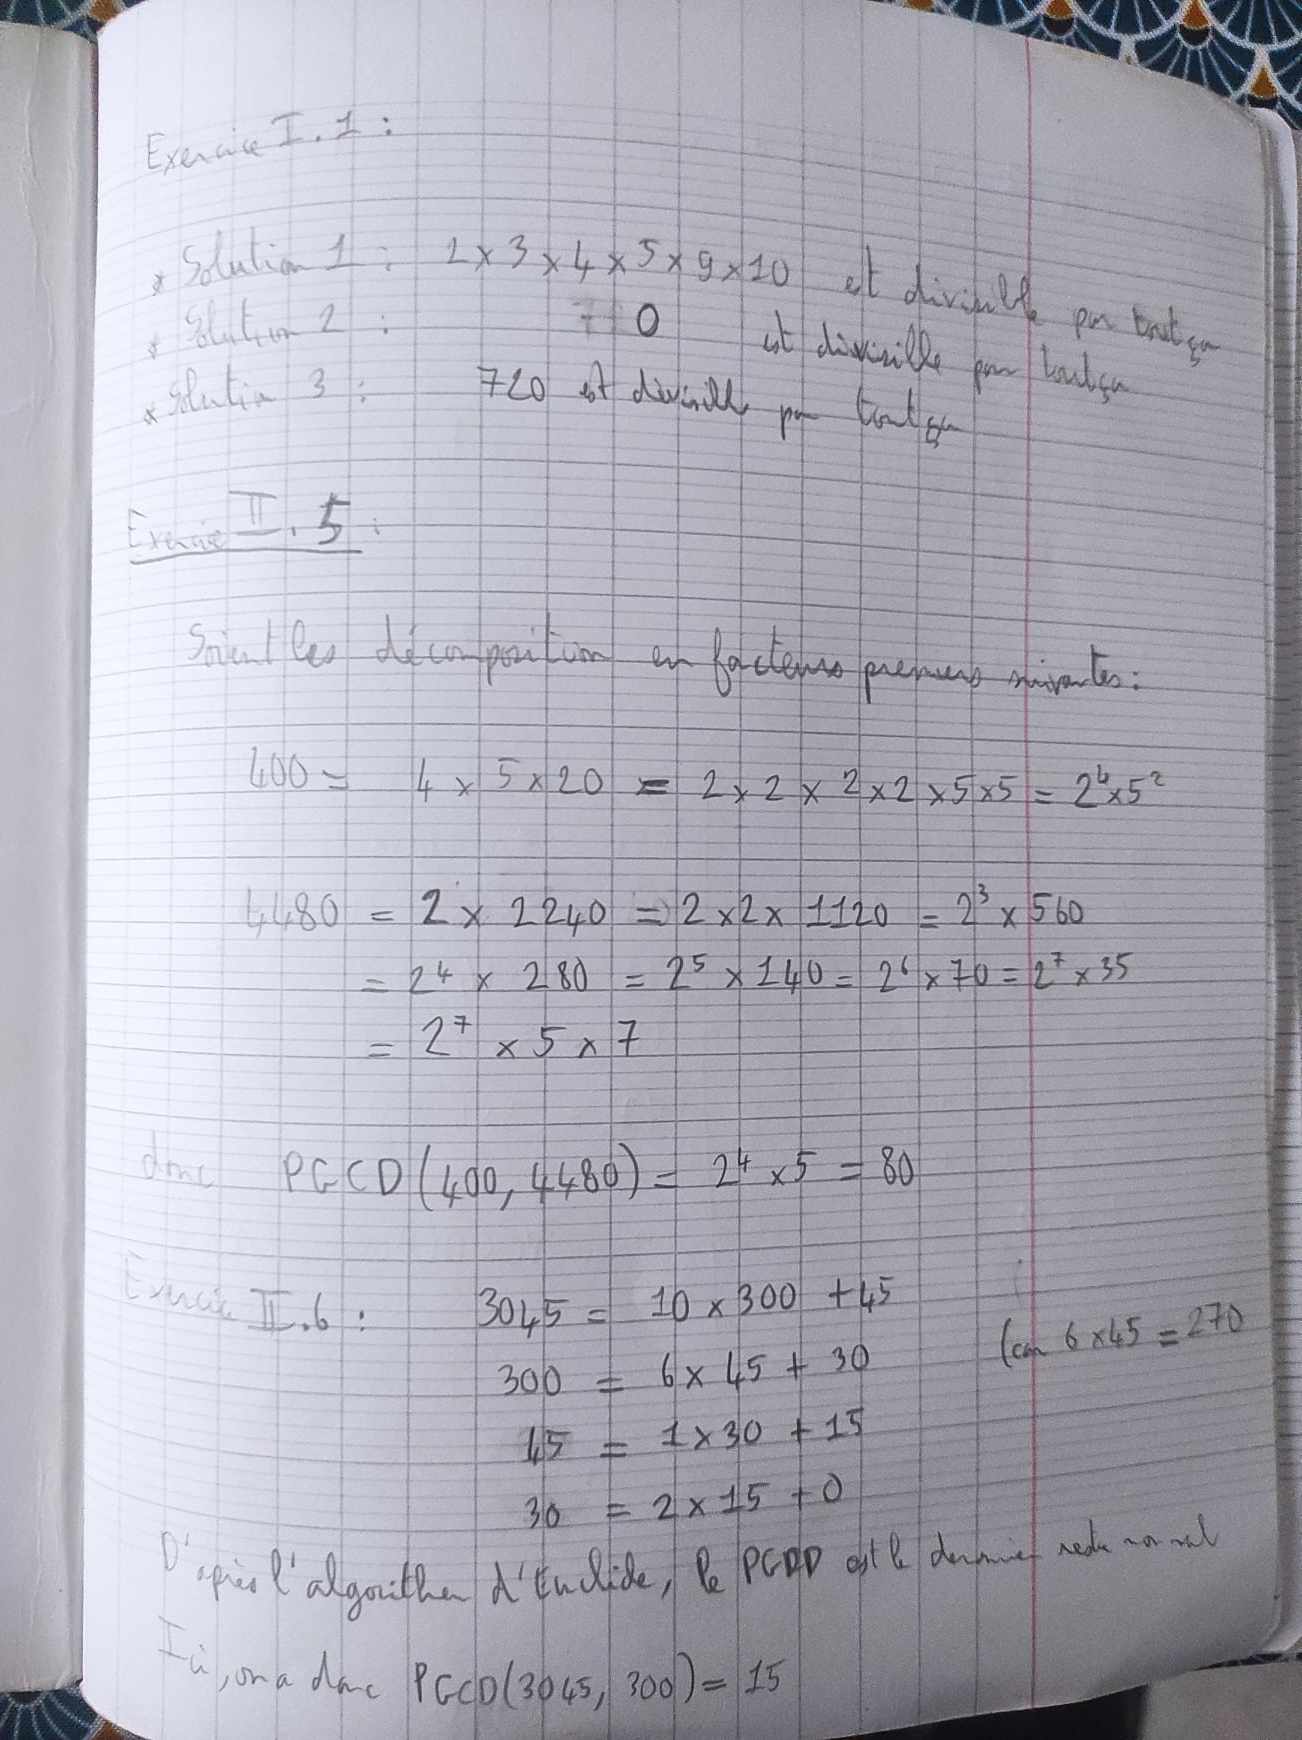 Exercice I.1 :
* Solution 1 : 2 x 3 x 4 x 5 x 9 x 10 est divisible par tout ça
* Solution 2 : 0 est divisible par tout ça
* Solution 3 : 720 est divisible par tout ça
Exercice II.5 :
Soient les décomposition en facteurs premiers suivantes :
400 = 4 x 5 x 20 = 2 x 2 x 2 x 2 x 5 x 5 = 2⁴ x 5²
4480 = 2 x 2240 = 2 x 2 x 1120 = 2³ x 560
= 2⁴ x 280 = 2⁵ x 140 = 2⁶ x 70 = 2⁷ x 35
= 2⁷ x 5 x 7
donc PGCD(400, 4480) = 2⁴ x 5 = 80
Exercice II.6 : 3045 = 10 x 300 + 45
300 = 6 x 45 + 30 (car 6 x 45 = 270
45 = 1 x 30 + 15
30 = 2 x 15 + 0
D'après l'algorithm d'Euclide, le PGDD est le dernier reste non nul
Ici, on a donc PGCD(3045, 300) = 15